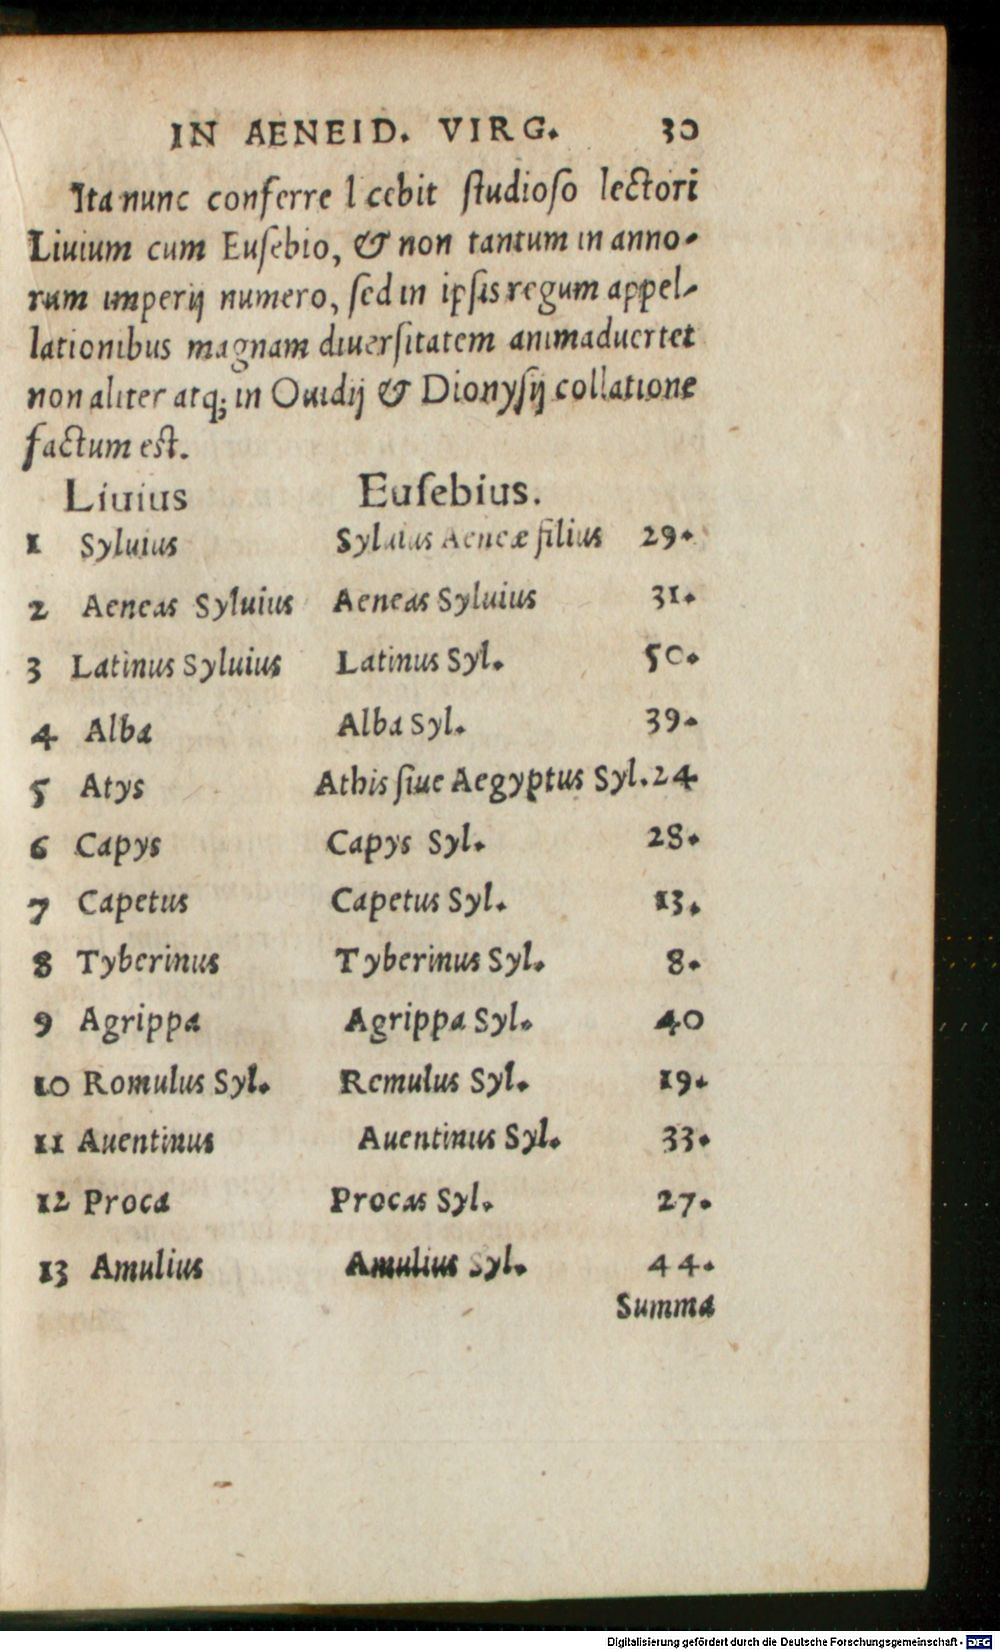 IN AENEID. VIRG. 30
Ita nunc conferre l cebit ſtudioſo lectori
Liuium cum Euſebio, & non tantum in anno-
rum imperij numero, ſed in ipſis regum appel-
lationibus magnam diuerſitatem animaduertet
non aliter atq; in Ouidij & Dionyſij collatione
factum est.
Liuius Euſebius.
1 Syluius Syluius Aeneæ filius 29.
2 Aeneas Syluius Aeneas Syluius 31.
3 Latinus Syluius Latinus Syl. 50.
4 Alba Alba Syl. 39.
5 Atys Athis ſiue Aegyptus Syl. 24
6 Capys Capys Syl. 28.
7 Capetus Capetus Syl. 13.
8 Tyberinus Tyberinus Syl. 8.
9 Agrippa Agrippa Syl. 40
10 Romulus Syl. Remulus Syl. 19.
11 Auentinus Auentinus Syl. 33.
12 Proca Procas Syl. 27.
13 Amulius Amulius Syl. 44.
Summa
Digitalisierung gefördert durch die Deutsche Forschungsgemeinschaft - DFG